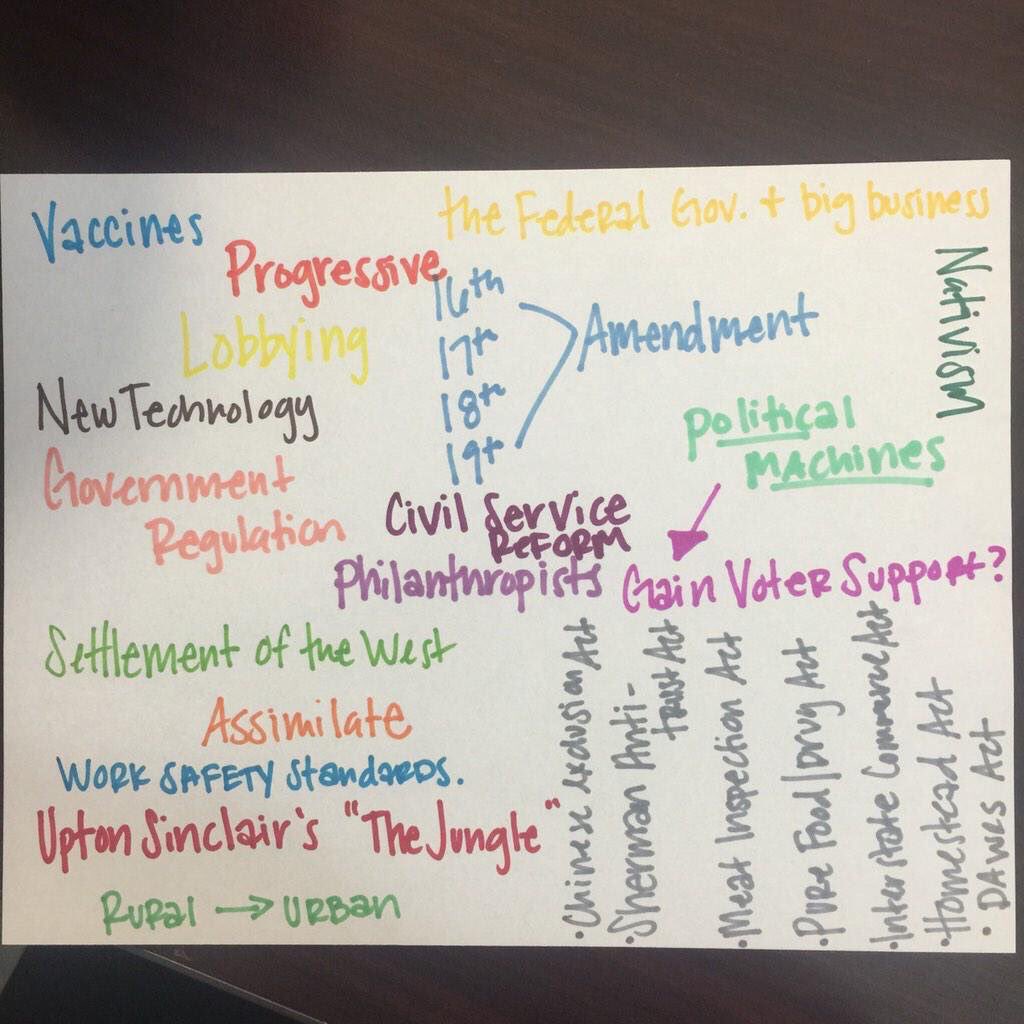 Vaccines
the Federal Gov. + big business
Progressive
Nativism
Lobbying
16th
17th
18th
19th
Amendment
New Technology
Political
Machines
Government
Regulation
Civil Service
Reform
Philanthropists
Gain Voter Support?
Settlement of the West
Assimilate
Work Safety Standards.
Upton Sinclair's "The Jungle"
Rural → Urban
• Chinese Exclusion Act
• Sherman Anti-
trust Act
• Meat Inspection Act
• Pure Food/Drug Act
• Interstate Commerce Act
• Homestead Act
• Dawes Act